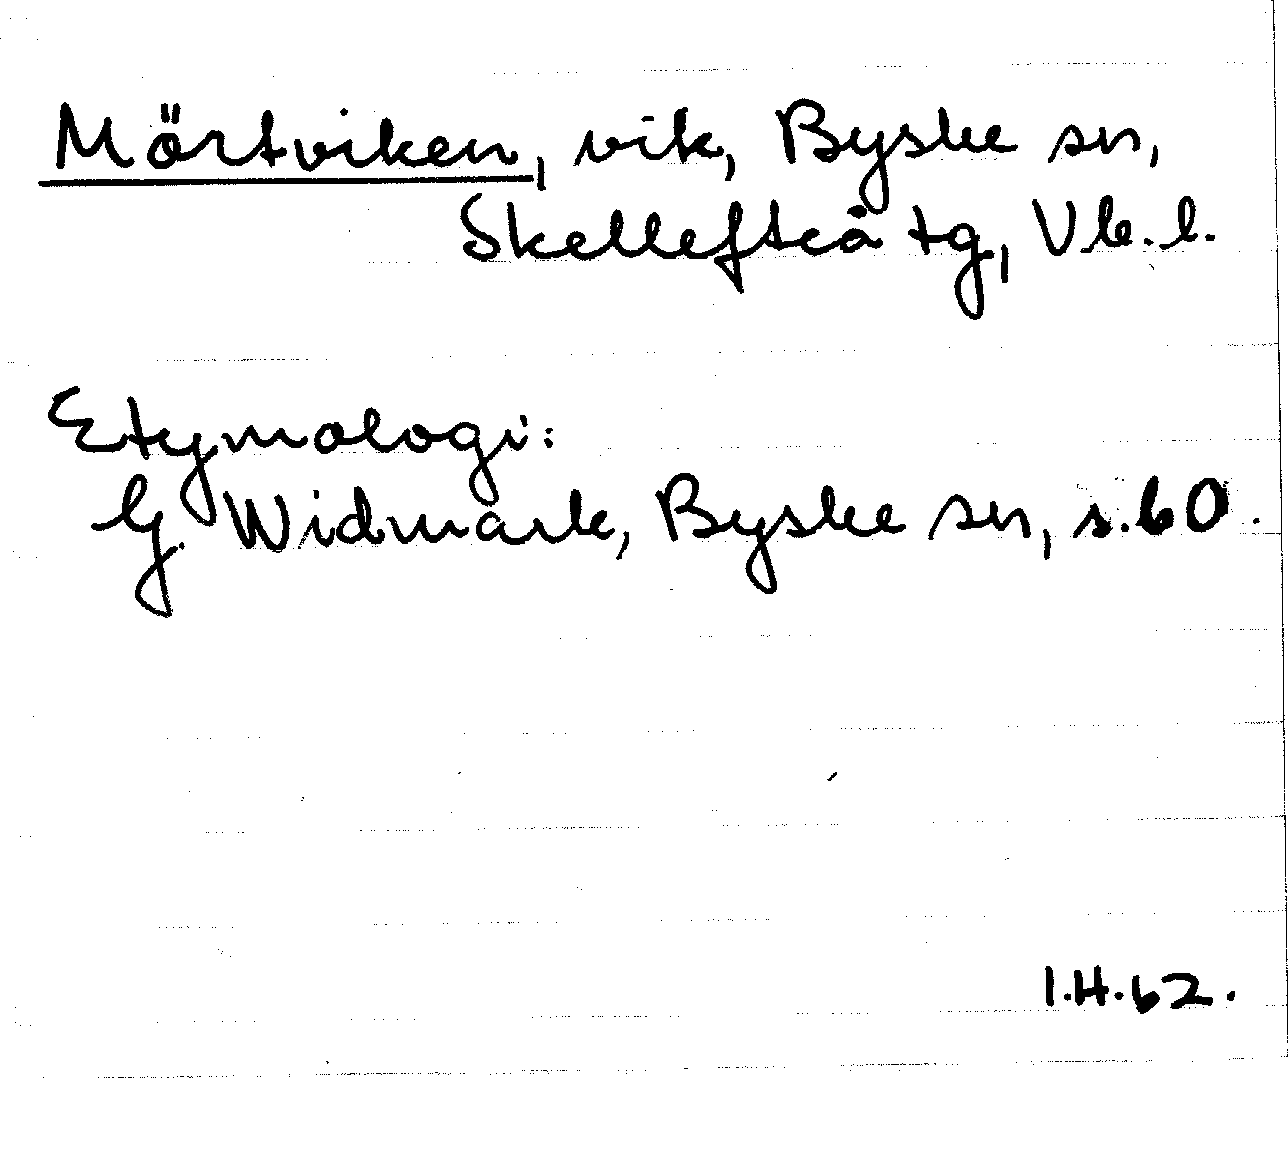 Mörtviken, vik, Byske sn,
Skellefteå tg, Vb.l.
Etymologi:
G Widmark, Byske sn, s.60.
I.H.62.